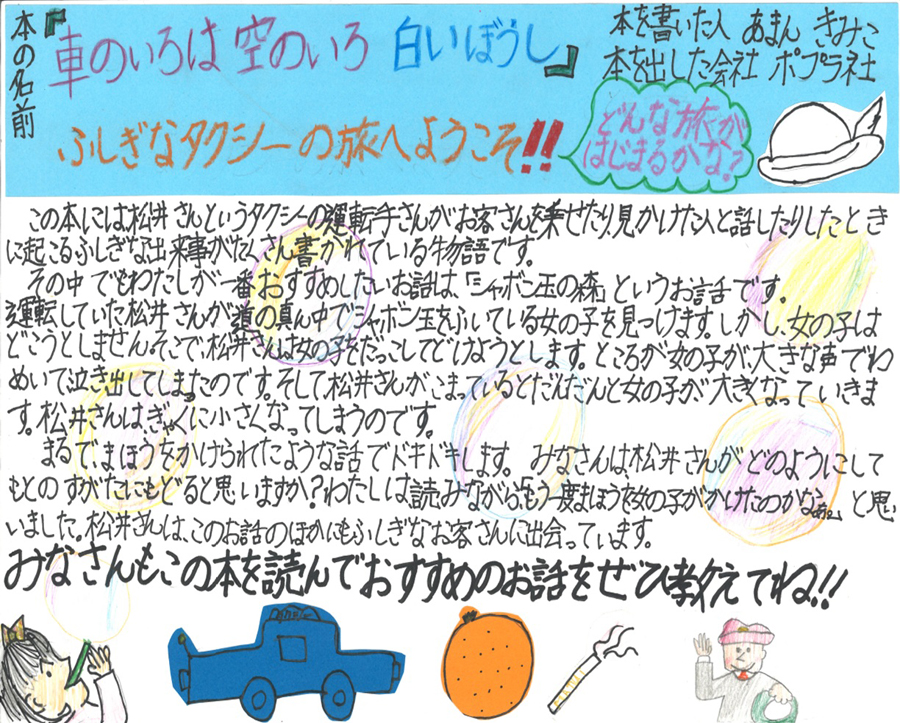 本の名前
『車のいろは空のいろ 白いぼうし』
本を書いた人 あまん きみこ
本を出した会社 ポプラ社
ふしぎなタクシーの旅へようこそ!!
どんな旅が
はじまるかな?
この本には松井さんというタクシーの運転手さんがお客さんを乗せたり、見かけた人と話したりしたとき
に起こるふしぎな出来事がたくさん書かれている物語です。
その中でもわたしが一番おすすめしたいお話は、「シャボン玉の森」というお話です。
運転していた松井さんが道の真ん中でシャボン玉をふいている女の子を見つけます。しかし、女の子は
どこうとしません。そこで、松井さんは女の子をだっこしてどけようとします。ところが女の子が、大きな声でわ
めいて泣き出してしまったのです。そして松井さんが、こまっているとだんだんと女の子が大きくなっていきま
す。松井さんは、ぎゃくに小さくなってしまうのです。
まるで、まほうをかけられたような話でドキドキします。 みなさんは、松井さんがどのようにして
もとのすがたにもどると思いますか?わたしは読みながら「もう一度まほうを女の子がかけたのかなぁ。」と思
いました。松井さんは、このお話のほかにもふしぎなお客さんに出会っています。
みなさんもこの本を読んでおすすめのお話をぜひ教えてね!!